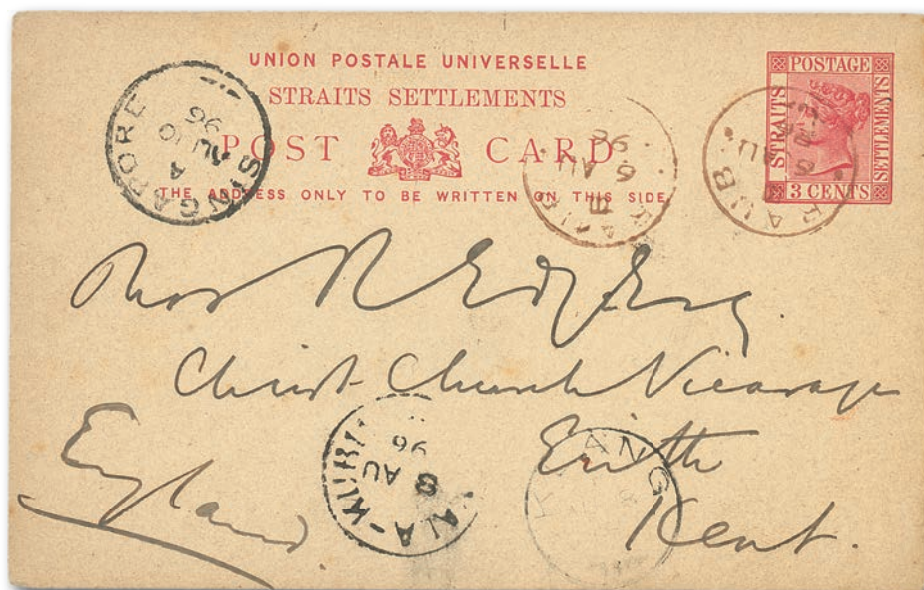 UNION POSTALE UNIVERSELLE
STRAITS SETTLEMENTS
POST CARD
THE ADDRESS ONLY TO BE WRITTEN ON THIS SIDE
POSTAGE
STRAITS
SETTLEMENTS
3 CENTS
SINGAPORE
A
AU 10
96
RAUB
E
6 AU
96
RAUB
AU
Esq
Christ Church Vicarage
Erith
Kent.
England
ALA-KUB
8
AU
96
KLANG